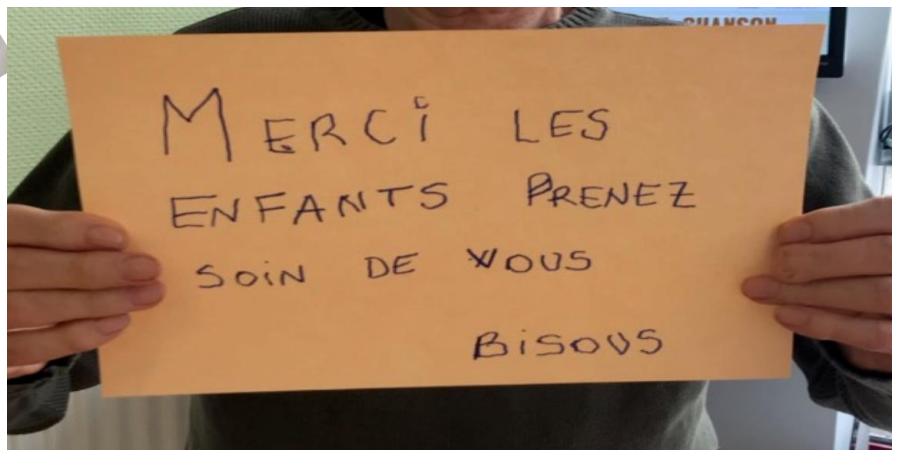 CHANSON
MERCi LES
ENFANTS PRENEZ
SOiN DE VOUS
BiSOUS